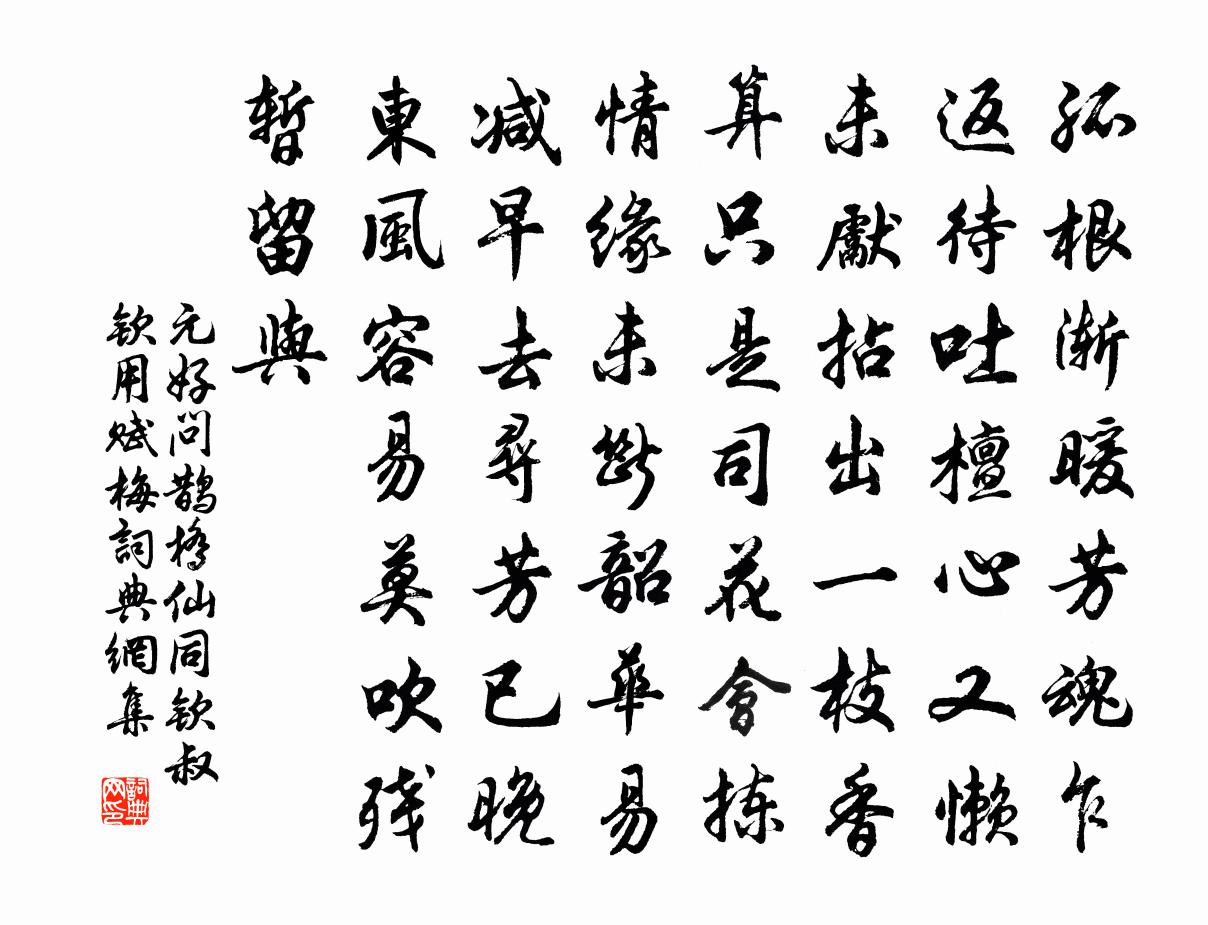 孤根漸暖芳魂乍
返待吐檀心又懒
未獻拈出一枝香
算只是司花會拣
情缘未斷韶華易
减早去尋芳已晚
東風容易莫吹残
暫留與
元好问鹊橋仙同钦叔
钦用赋梅詞典網集
詞典网印